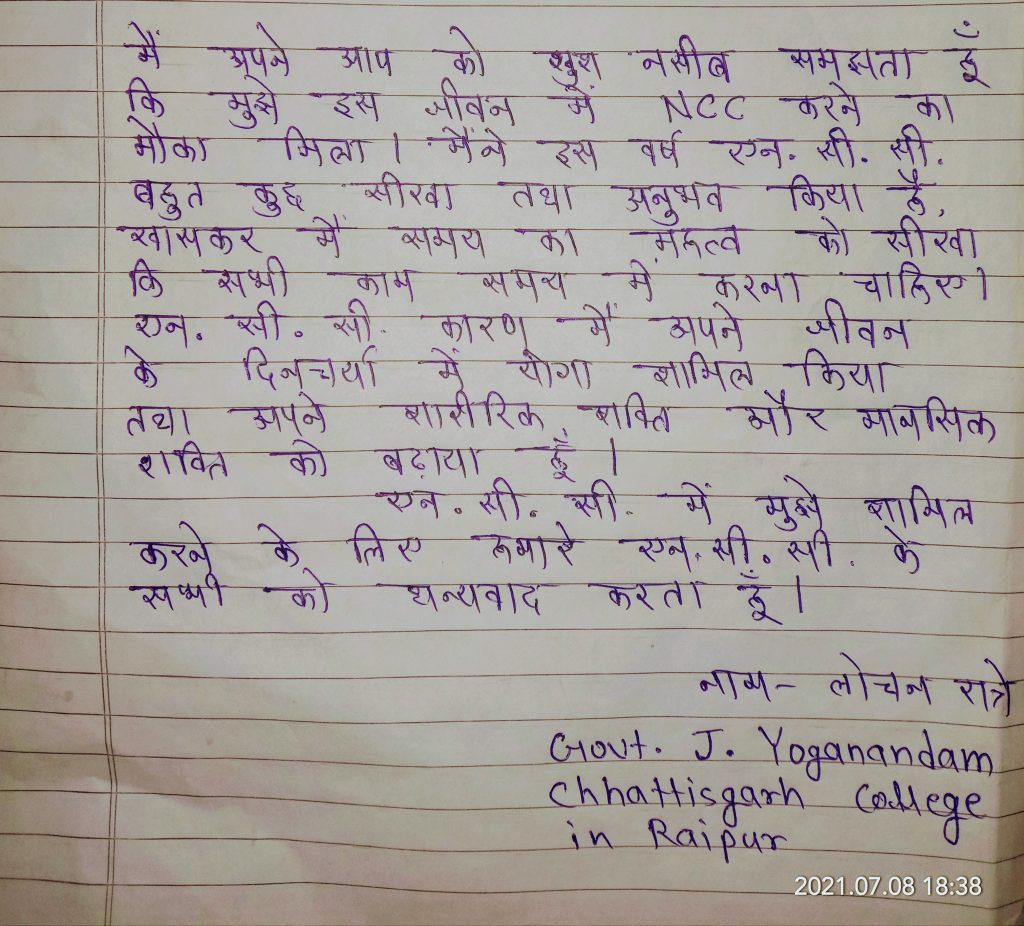 मैं अपने आप को खुश नसीब समझता हूँ
कि मुझे इस जीवन में NCC करने का
मौका मिला । मैंने इस वर्ष एन. सी. सी.
बहुत कुछ सीखा तथा अनुभव किया है,
खासकर मैं समय का महत्व को सीखा
कि सभी काम समय में करना चाहिए।
एन. सी. सी. कारण मैं अपने जीवन
के दिनचर्या में योगा शामिल किया
तथा अपने शारीरिक, शक्ति और मानसिक
शक्ति को बढ़ाया हूँ ।
एन. सी. सी. में मुझे शामिल
करने के लिए हमारे एन. सी. सी. के
सभी को धन्यवाद करता हूँ ।
नाम - लोचन रात्रे
Govt. J. Yoganandam
Chhattisgarh College
in Raipur
2021.07.08 18:38